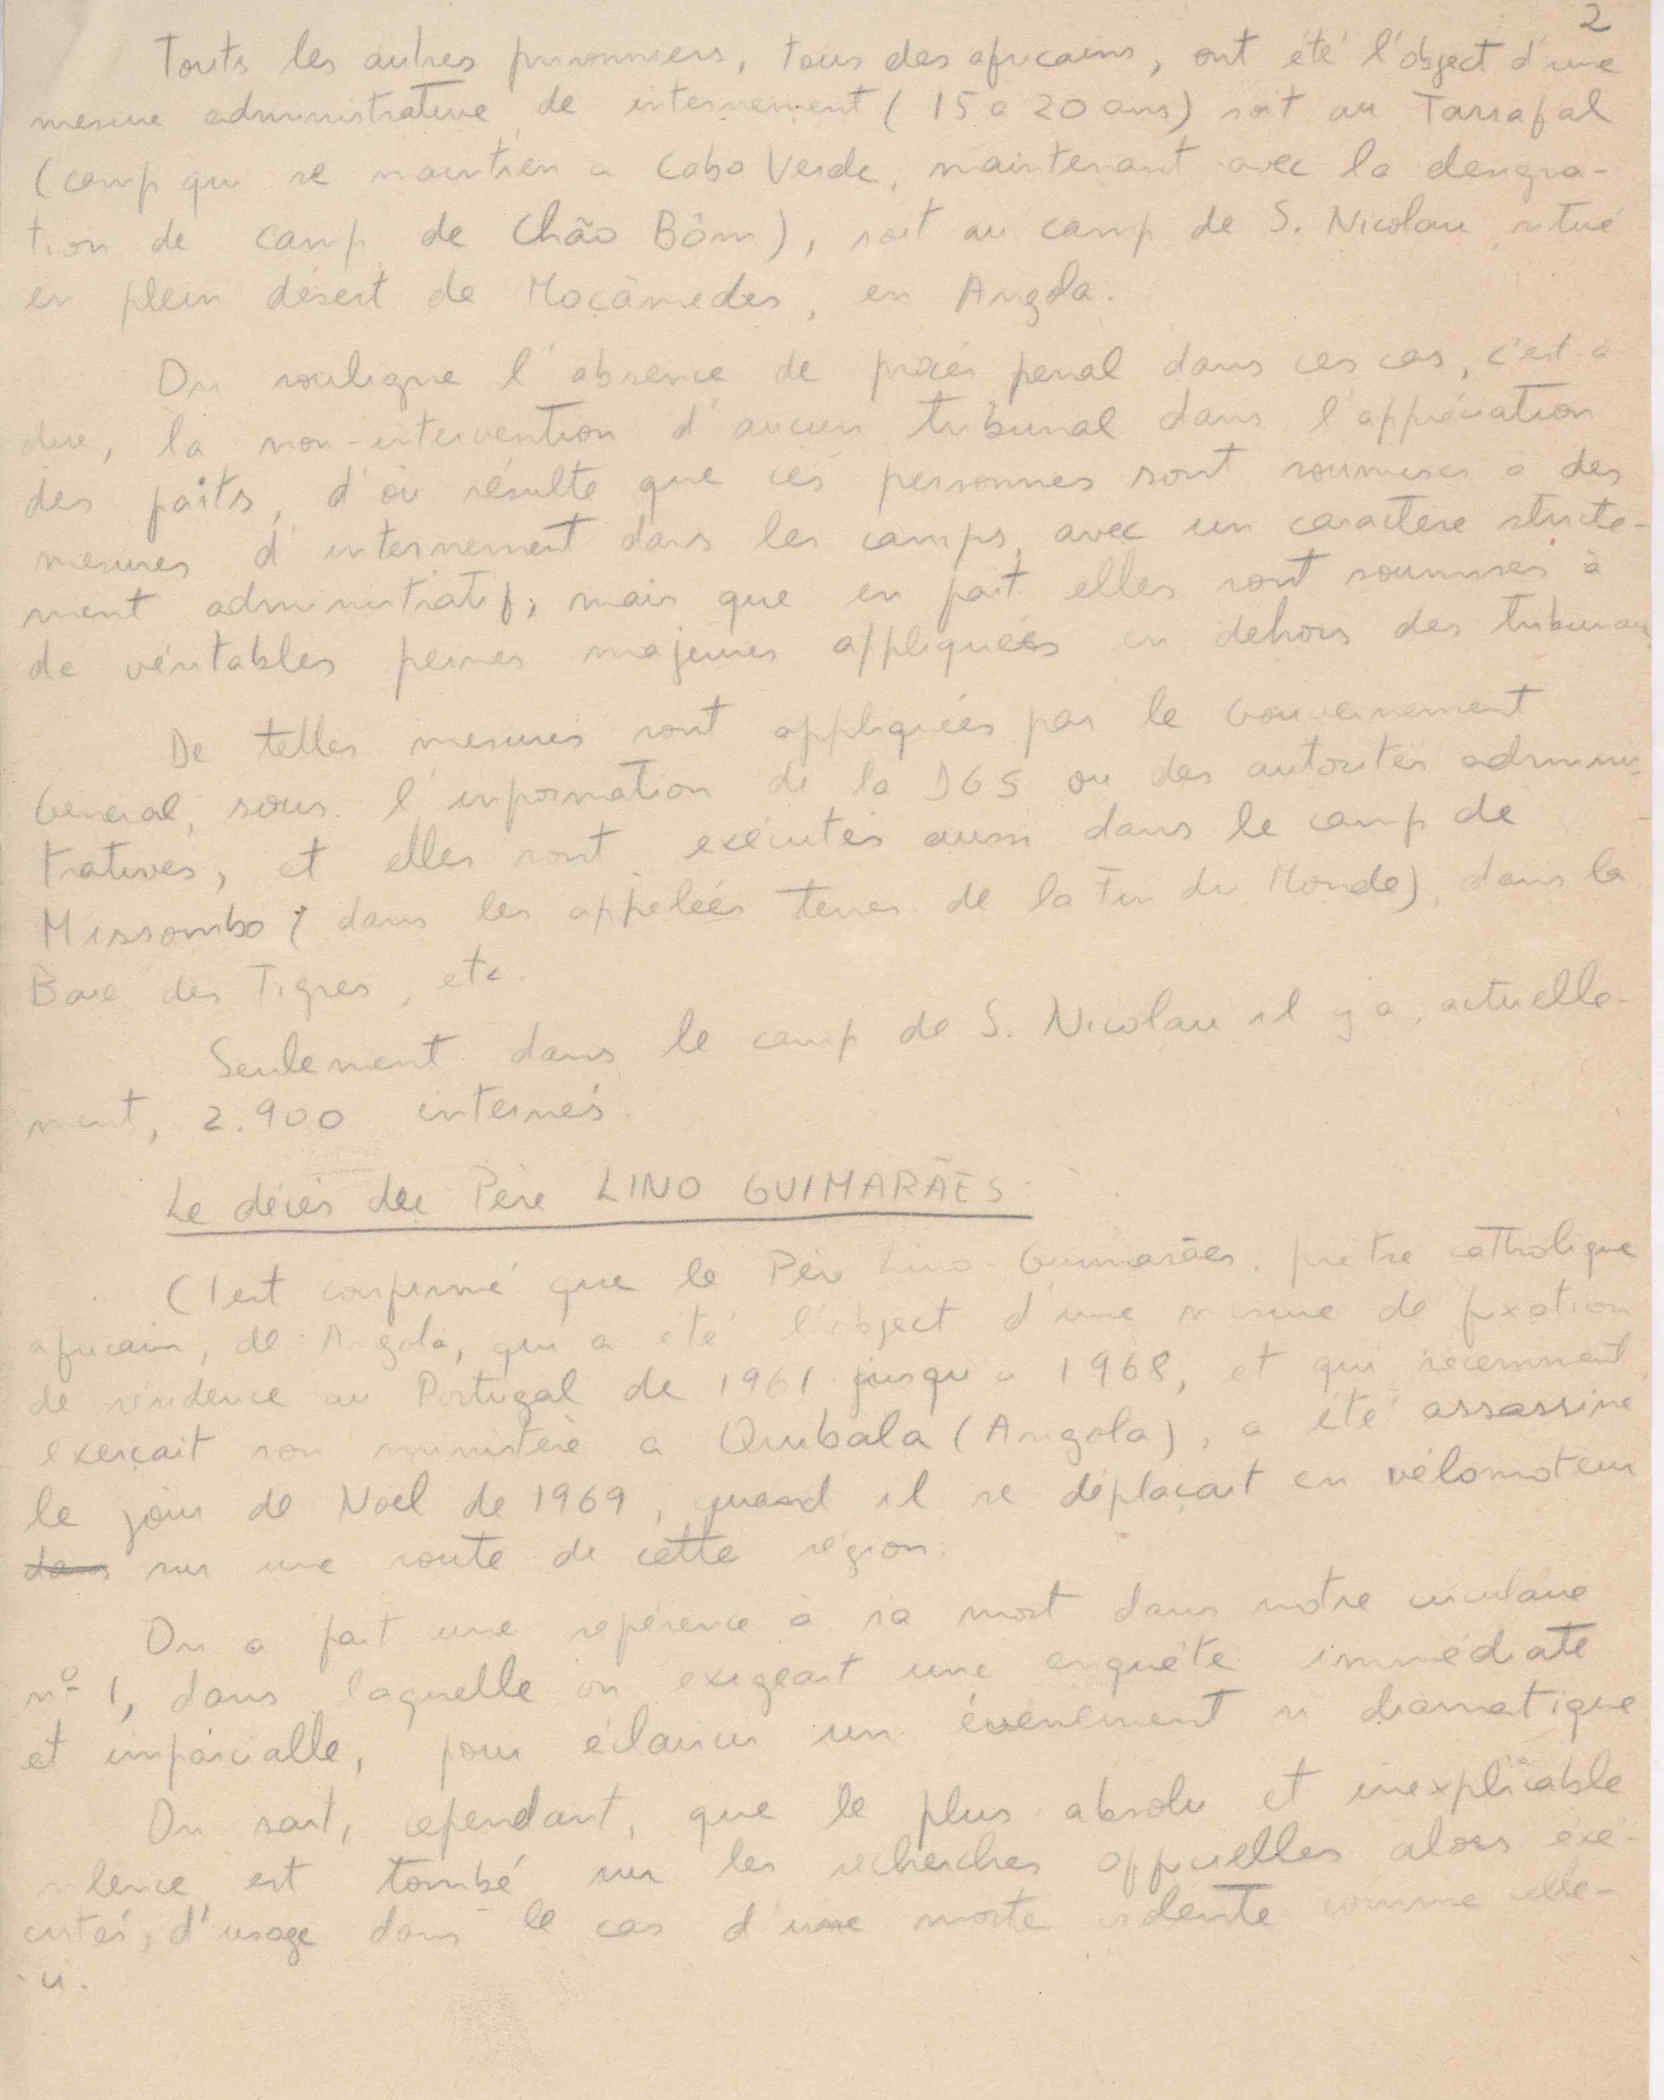 2
Touts les autres prisonniers, tous des africains, ont été l'object d'une
mesure administrative de internement (15 a 20 ans) soit au Tarrafal
(camp qui se maintien a Cabo Verde, maintenant avec la designa-
tion de camp de Chão Bôm), soit au camp de S. Nicolau, situé
en plein désert de Moçâmedes, en Angola.
On souligne l'absence de procés penal dans ces cas, c'est a
dire, la non-intervention d'aucun tribunal dans l'appréciation
des faits, d'où résulte que cés personnes sont soumises a des
mesures d'internement dans les camps, avec un caractère stricte-
ment administratif, mais que en fait elles sont soumises à
de véritables peines majeures appliquées en dehors des tribunaux
De telles mesures sont appliquées par le Gouvernement
Général, sous l'information de la DGS ou des autorités adminis-
tratives, et elles sont exécutés aussi dans le camp de
Missombo (dans les appelées terres de la Fin du Monde), dans la
Baie des Tigres, etc.
Seulement dans le camp de S. Nicolau il y a, actuelle-
ment, 2.900 internés.
Le décés du Père LINO GUIMARÃES
C'est confirmé que le Père Lino Guimarães, prêtre catholique
africain, de Angola, qui a été l'object d'une mesure de fixation
de résidence au Portugal de 1961 jusqu'a 1968, et qui récemment
exerçait son ministère a Quibala (Angola), a été assassiné
le jour de Noel de 1969, quand il se déplaçait en vélomoteur
dans sur une route de cette région.
On a fait une reférence à sa mort dans notre circulaire
nº 1, dans laquelle on exigeait une enquête immédiate
et imparcialle, pour éclaircir un évenement si dramatique
On sait, cependant, que le plus absolu et inexplicable
silence est tombé sur les recherches officielles alors exé-
cutés, d'usage dans le cas d'une morte violente comme celle-
-ci.